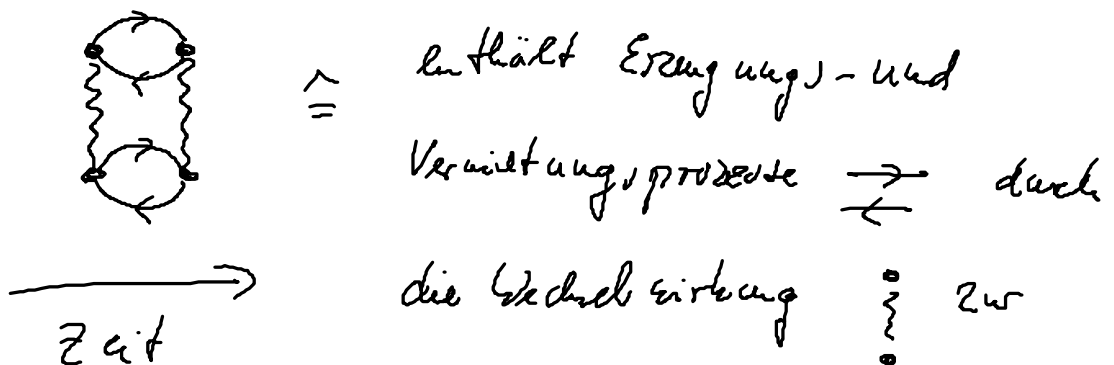 ≙ enthält Erzeugungs- und
Vernichtungsprozesse → ← durch
die Wechselwirkung zur
Zeit